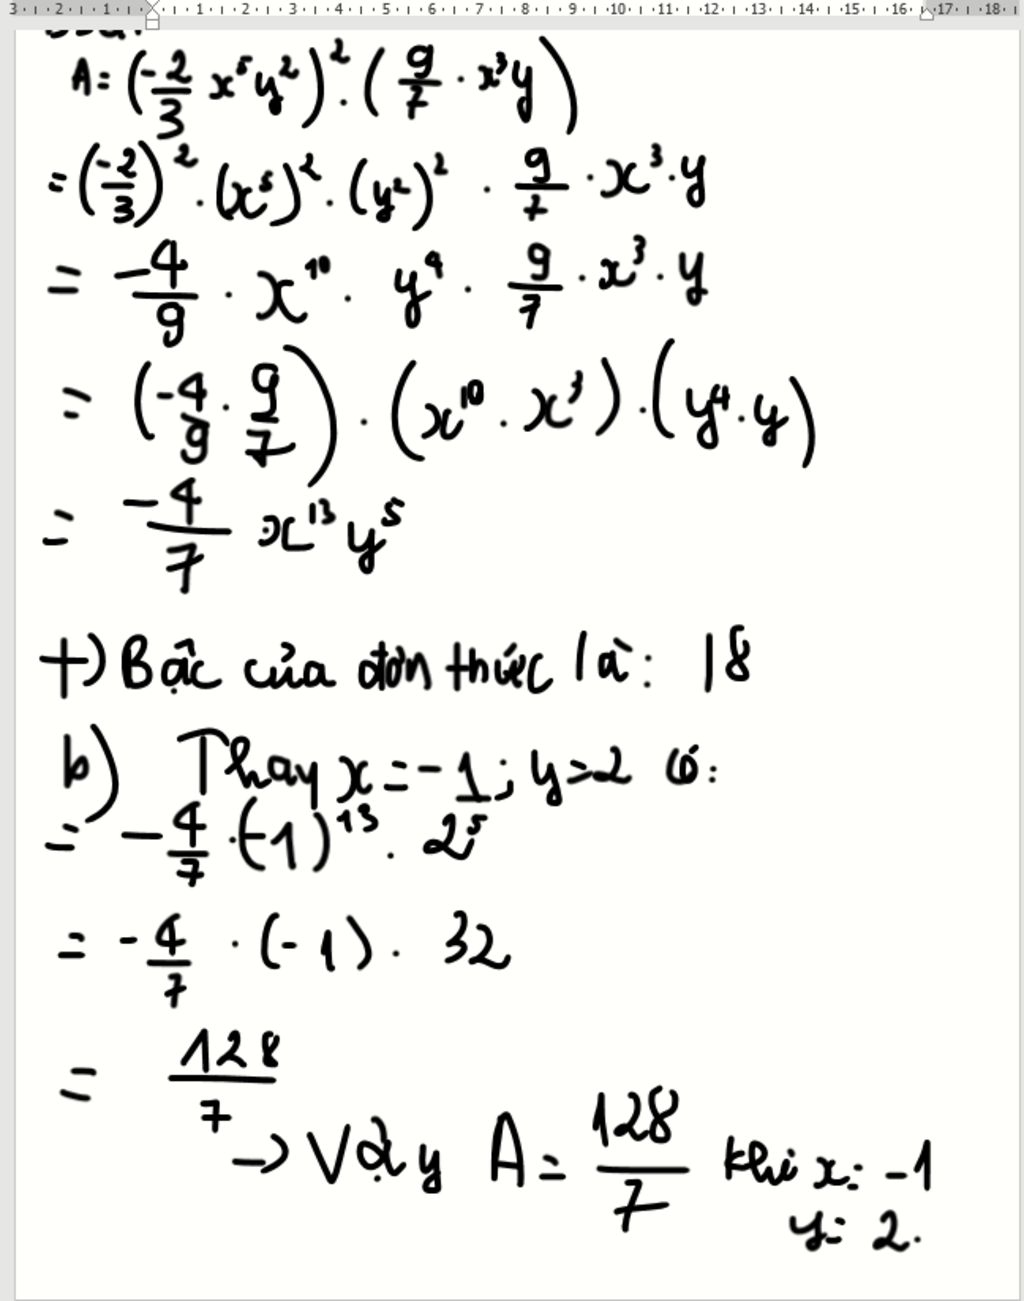 3 2 1 1 2 3 4 5 6 7 8 9 10 11 12 13 14 15 16 17 18
A = (-2/3 x⁵y²)² . (9/7 . x³y)
= (-2/3)² . (x⁵)² . (y²)² . 9/7 . x³ . y
= -4/9 . x¹⁰ . y⁴ . 9/7 . x³ . y
= (-4/9 . 9/7) . (x¹⁰ . x³) . (y⁴ . y)
= -4/7 x¹³y⁵
+) Bậc của đơn thức là: 18
b) Thay x = -1; y = 2 có:
= -4/7 . (-1)¹³ . 2⁵
= -4/7 . (-1) . 32
= 128/7
→ Vậy A = 128/7 khi x = -1
y = 2.